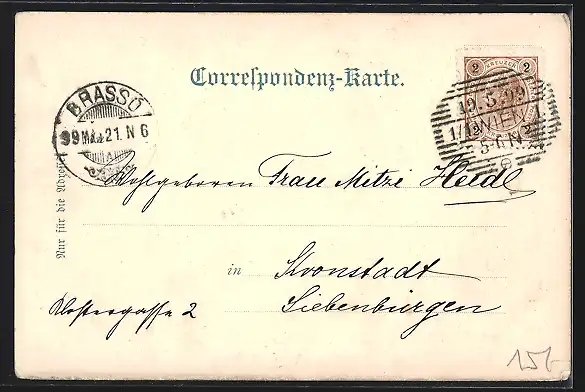 Correspondenz-Karte.
2 KREUZER 2
19.5.99
1/1 WIEN 1
5-6 N
BRASSÓ
99 MÁJ 21. N 6
Nur für die Adresse.
Wohlgeboren Frau Mitzi Heidl
in Kronstadt
Klostergasse 2 Siebenbürgen
156